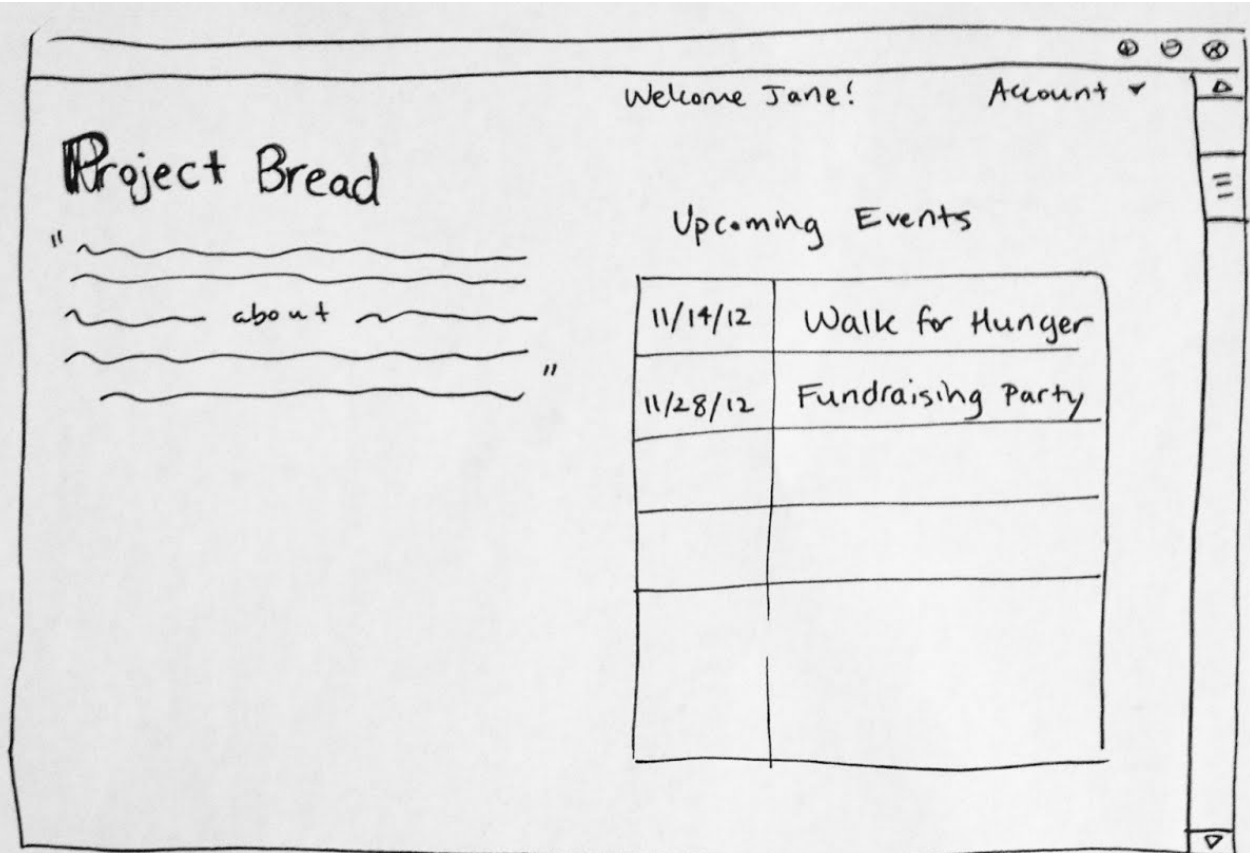 Welcome Jane! Account
Project Bread
"
about
"
Upcoming Events
11/14/12 Walk for Hunger
11/28/12 Fundraising Party